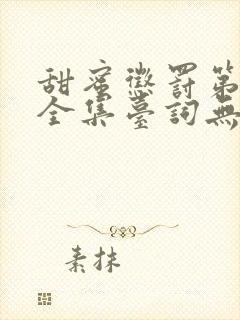 甜蜜懲罰第
全集臺詞無
素抹